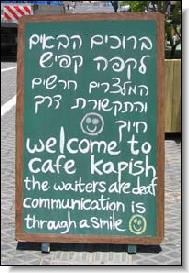 ברוכים הבאים
לקפה קפיש
המלצרים חרשים
והתקשורת דרך
חיוך
welcome to
cafe kapish
the waiters are deaf
communication is
through a smile